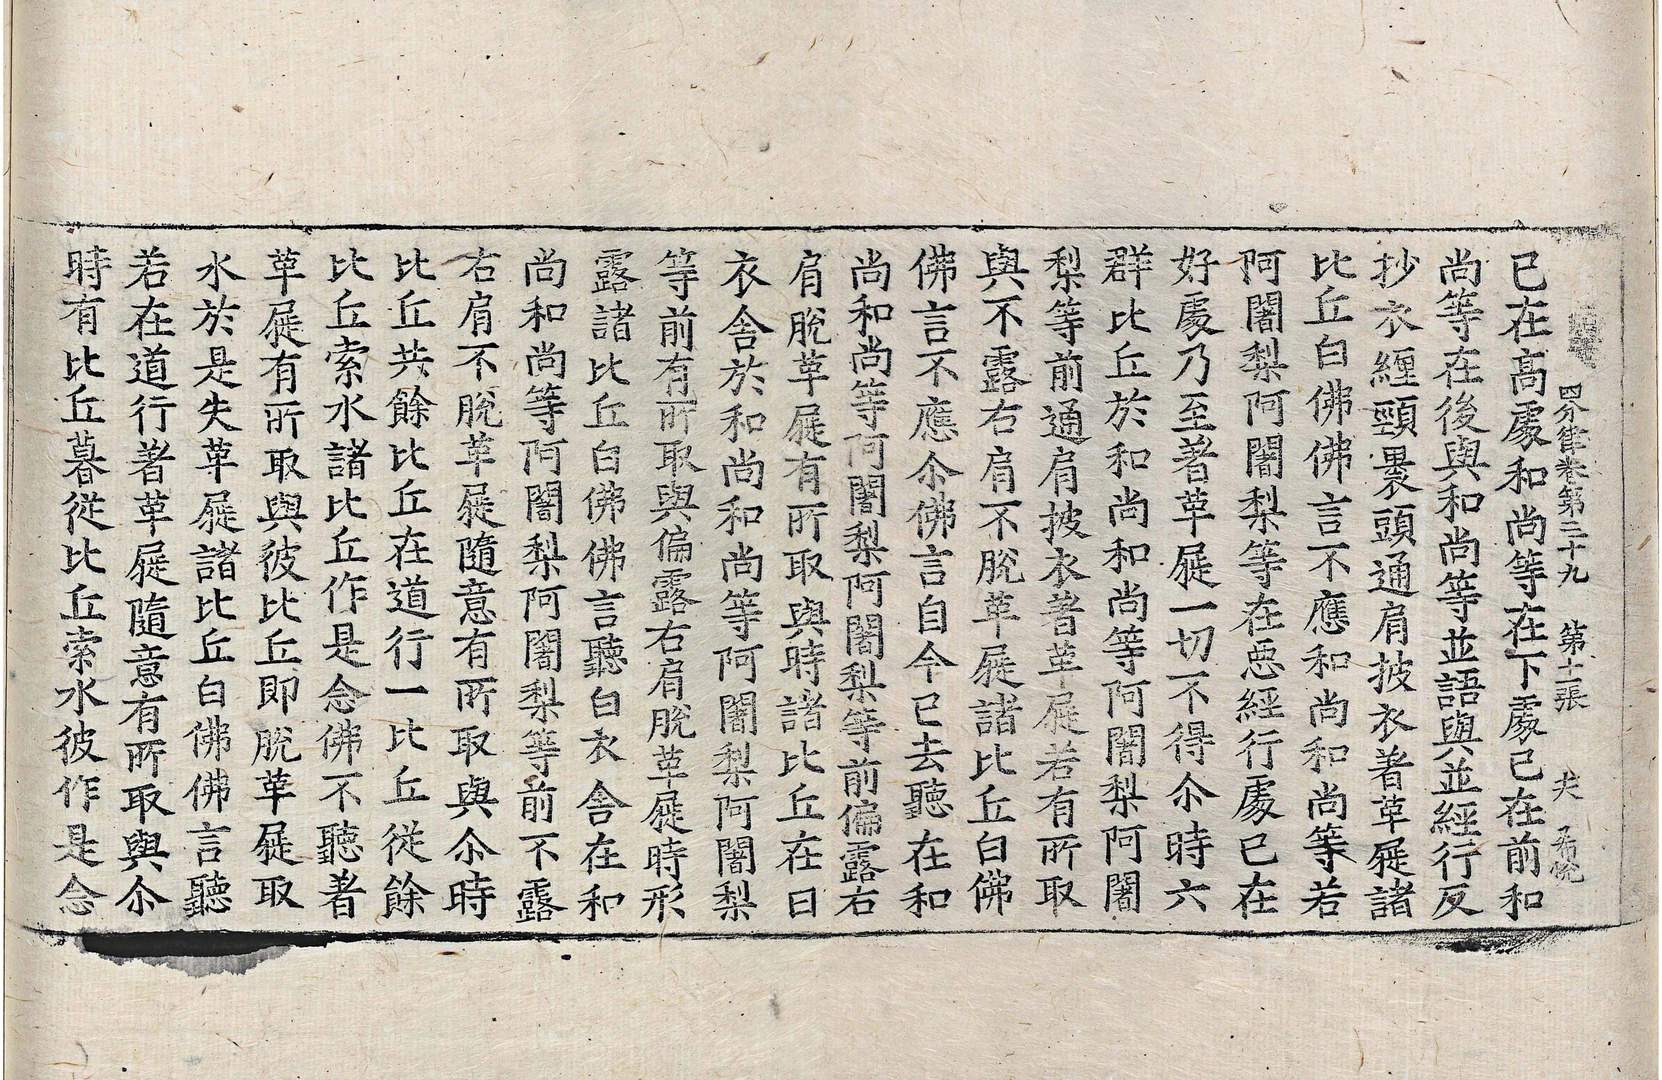 四分律卷第三十九 第十二張 夫 希悅
已在高處和尚等在下處已在前和
尚等在後與和尚等並語與並經行反
抄衣纒頸褁頭通肩披衣著革屣諸
比丘白佛佛言不應和尚和尚等若
阿闍梨阿闍梨等在惡經行處已在
好處乃至著革屣一切不得尒時六
群比丘於和尚和尚等阿闍梨阿闍
梨等前通肩披衣著革屣若有所取
與不露右肩不脫革屣諸比丘白佛
佛言不應尒佛言自今已去聽在和
尚和尚等阿闍梨阿闍梨等前偏露右
肩脫革屣有所取與時諸比丘在白
衣舍於和尚和尚等阿闍梨阿闍梨
等前有所取與偏露右肩脫革屣時形
露諸比丘白佛佛言聽白衣舍在和
尚和尚等阿闍梨阿闍梨等前不露
右肩不脫革屣隨意有所取與尒時
比丘共餘比丘在道行一比丘從餘
比丘索水諸比丘作是念佛不聽著
革屣有所取與彼比丘即脫革屣取
水於是失革屣諸比丘白佛佛言聽
若在道行著革屣隨意有所取與尒
時有比丘暮從比丘索水彼作是念